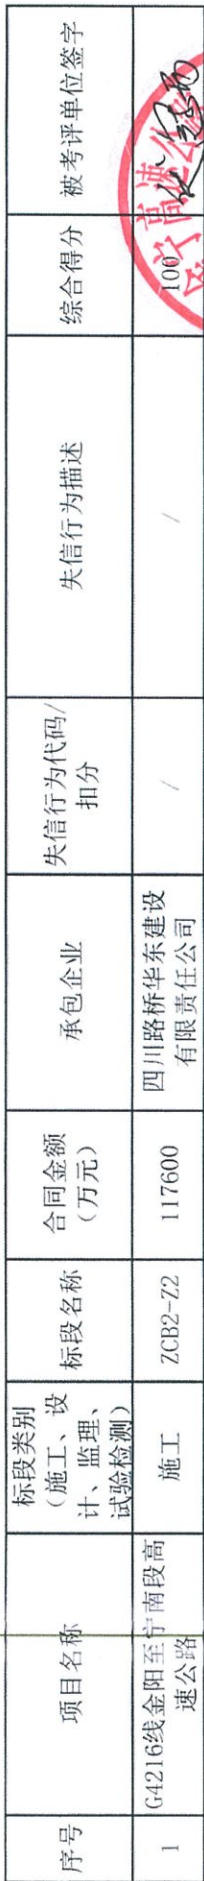 序号
项目名称
标段类别
（施工、设
计、监理、
试验检测）
标段名称
合同金额
（万元）
承包企业
失信行为代码/
扣分
失信行为描述
综合得分
被考评单位签字
1
G4216线金阳至宁南段高
速公路
施工
ZCB2-Z2
117600
四川路桥华东建设
有限责任公司
/
/
100